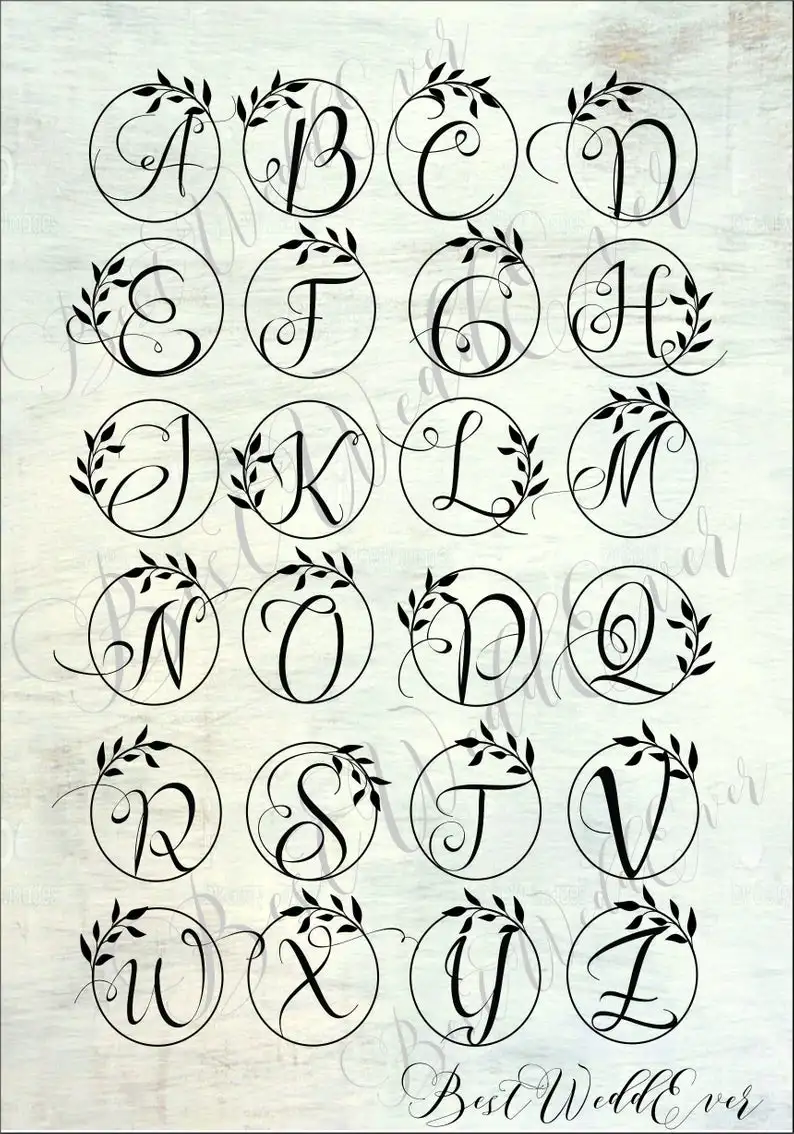 A B C D
E F G H
J K L M
N O P Q
R S T V
W X Y Z
BestWeddEver